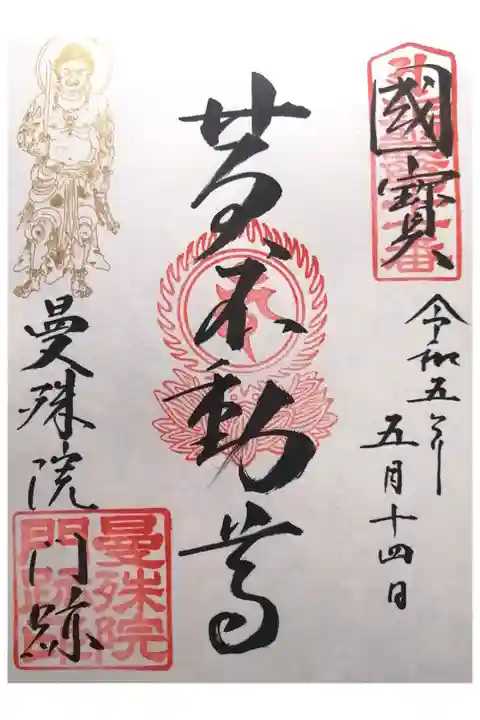 國寳
令和五年
五月十四日
黄不動尊
曼殊院
門跡
曼殊院
門跡